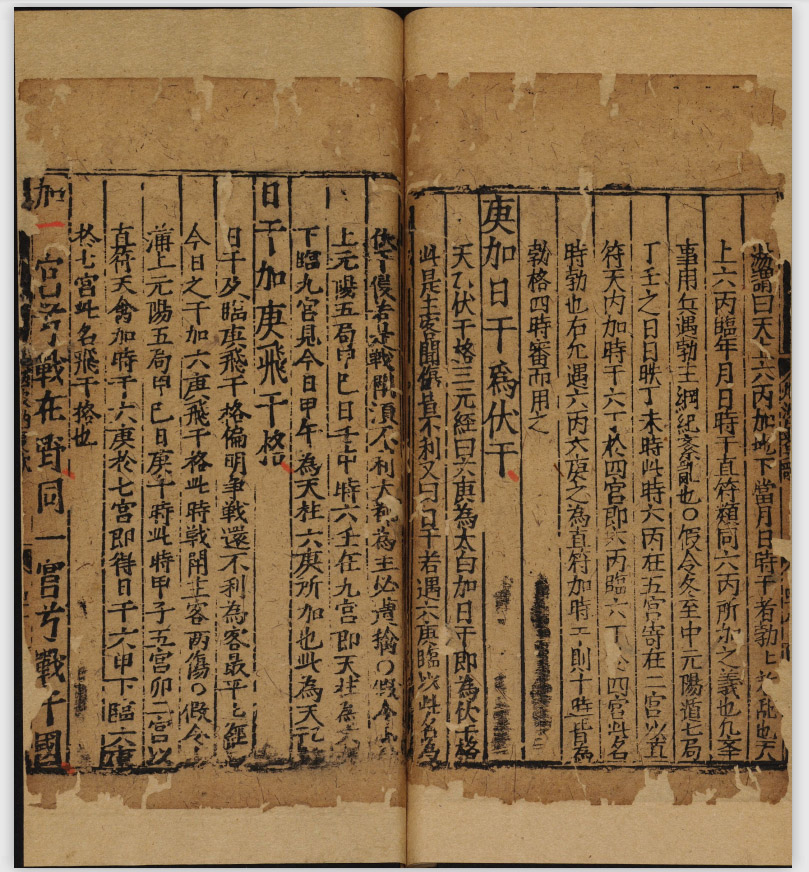 謂曰天上六丙加地下當月日時干者勃也亂也天
上六丙臨年月日時干直符類同六丙所加之義也凡舉
事用兵遇勃主綱紀紊亂也○假令冬至中元陽遁七局
丁壬之日日昳丁未時此時六丙在五宮寄在二宮以直
符天内加時干六丁於四宮即六丙臨六丁於四宮此名
時勃也右凡遇六丙六庚之為直符加時干則十時皆為
勃格四時審而用之
庚加日干為伏干
天乙伏干格三元經曰六庚為太白加日干即為伏干格
此是主客鬪傷皆不利又曰日干若遇六庚臨以此名為
伏干 若是戰鬪須不利大 為主必遭擒○假令
上元陽五局甲巳日壬申時六壬在九宮即天柱為六
下臨九宮見今日甲午為天柱六庚所加也此為天乙
日干加庚飛干格
日干及臨庚飛干格偏明爭戰還不利為客最平也經
今日之干加六庚飛干格此時戰鬪主客兩傷○假令
上元陽五局甲巳日庚午時此時甲子五宮卯二宮以
直符天禽加時干六庚於七宮即得日干六甲下臨六庚
於七宮此名飛干格也
加一宮兮戰在野同一宮兮戰于國